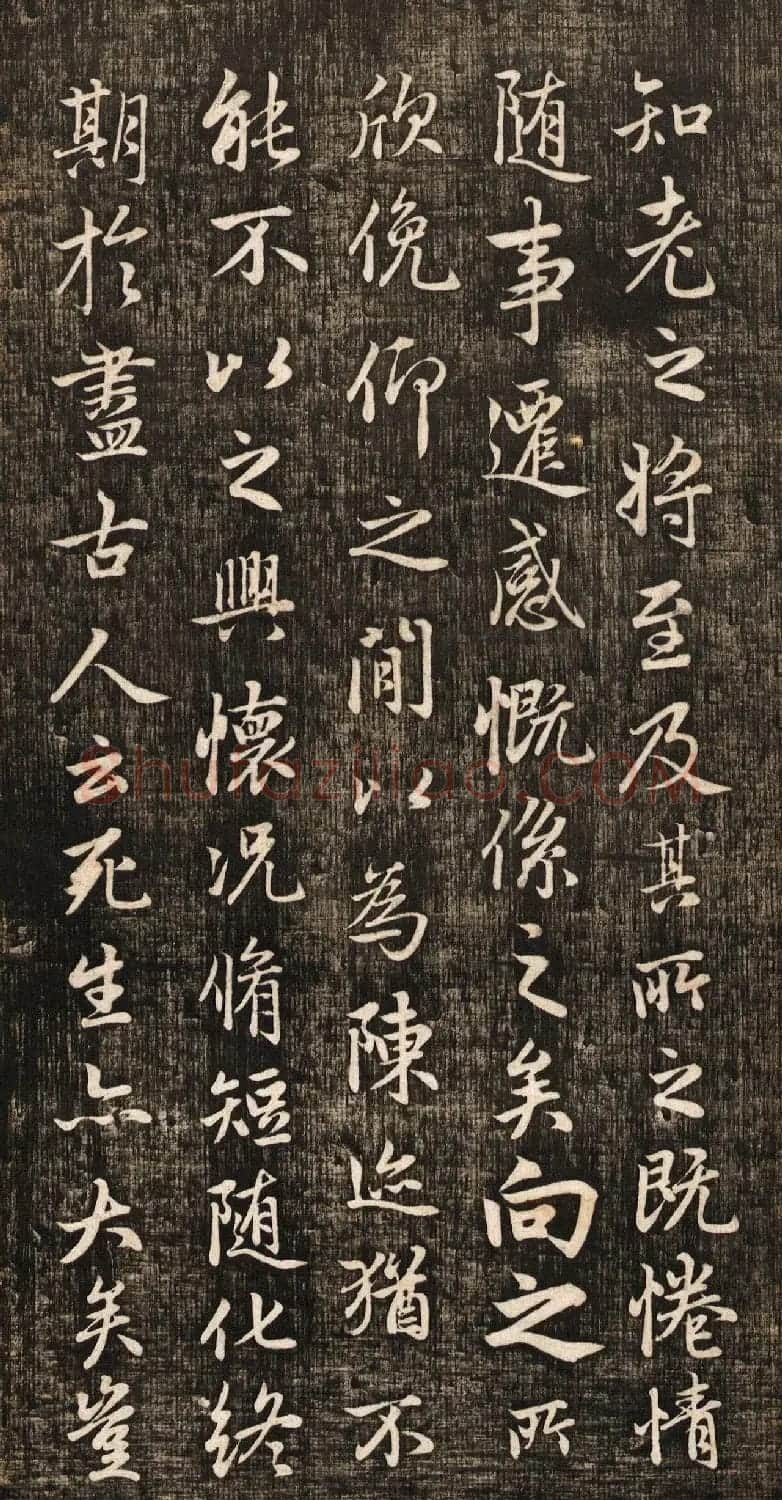 知老之将至及其所之既惓情
随事遷感慨係之矣向之所
欣俛仰之間以為陳迹猶不
能不以之興懷况脩短随化終
期於盡古人云死生亦大矣豈
Shufaziliao.COM